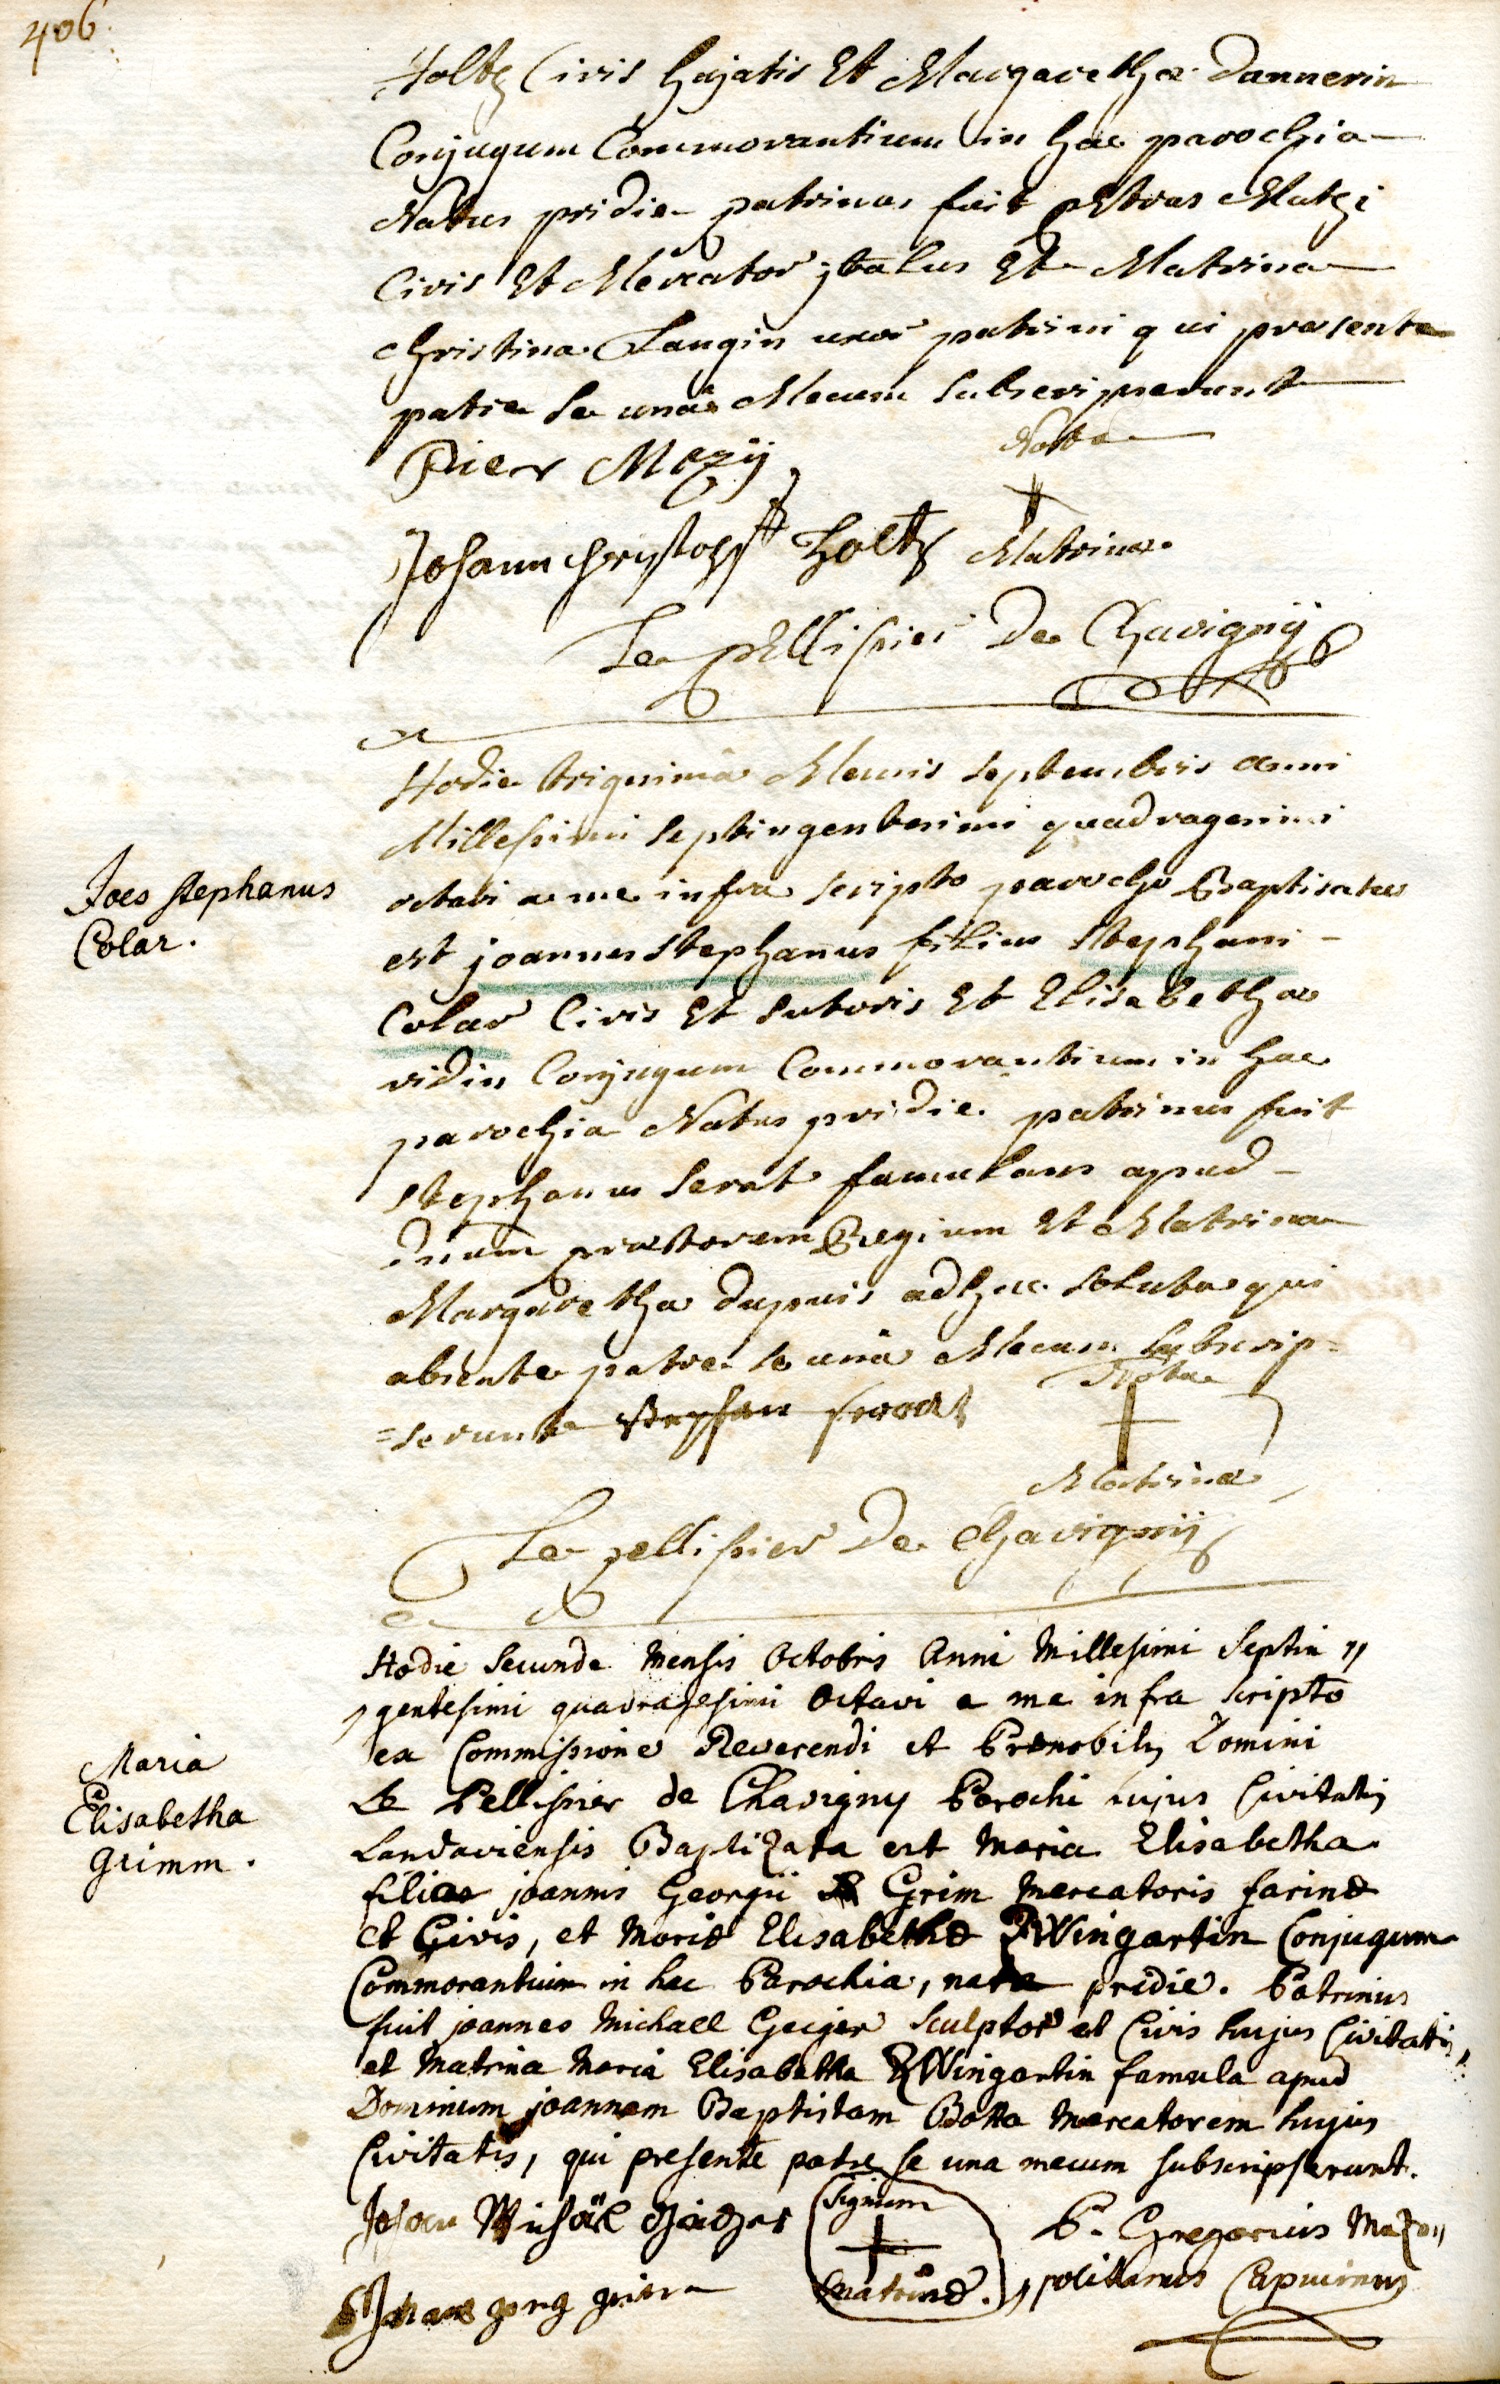 406.
Holtz Civis hujatis Et Margarethæ Dannerin
Conjugum Commorantium in hac parochia
Natus pridie patrinus fuit petrus Matzi
Civis Et Mercator jtalus Et Matrina
christina Langin uxor patrini qui præsente
patre se unâ Mecum subscripserunt
Nota
Pier Mezÿ
Johann Christoph Holtz Matrinæ.
Le pEllissier De Chavignÿ
Hodie trigesimâ Mensis septembris anni
Millesimi septingentesimi quadragesimi
Joes stephanus
Colar.
octavi a me infra scripto parocho Baptisatus
est joannes stephanus filius stephani
Colar Civis Et sutoris Et Elisabethæ
vidin Conjugum Commorantium in hac
parochia Natus pridie. patrinus fuit
stephanus serat famulans apud
Dnum prætorem Regium Et Matrina
Margaretha dupuis adhuc soluta qui
absente patre se unâ Mecum subscrip=
Nota
=serunt stephan
Matrinæ
Le pellissier De Chavignÿ
Hodie secunda Mensis Octobris Anni Millesimi Septin„
„gentesimi quadragesimi Octavi a me infra scripto
ex Commissione Reverendi et Prænobilis Domini
Le Pellissier de Chavigny Parochi hujus Civitatis
Maria
Elisabetha
grimm.
Landaviensis Baptizata est Maria Elisabetha
filia joannis Georgii Grim Mercatoris farinæ
et Civis, et Mariæ Elisabethæ Wingartin Conjugum
Commorantium in hac Parochia, nata pridie. Patrinus
fuit joannes Michael Geiger Sculptor et Civis hujus Civitatis,
et Matrina Maria Elisabetha Wingartin famula apud
Dominum joannem Baptistam Botta Mercatorem hujus
Civitatis, qui presente patre se una mecum subscripserunt.
Signum
Johan Michäel
P. Gregorius Mazo„
Matrinæ.
„politanus Capucinus
Johans gorg grim